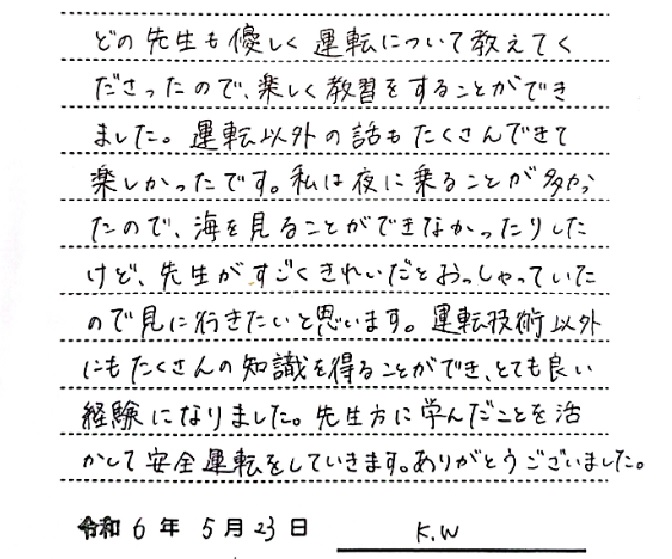 どの先生も優しく運転について教えてく
ださったので、楽しく教習をすることができ
ました。運転以外の話もたくさんできて
楽しかったです。私は夜に乗ることが多かっ
たので、海を見ることができなかったりした
けど、先生がすごくきれいだとおっしゃっていた
ので見に行きたいと思います。運転技術以外
にもたくさんの知識を得ることができ、とても良い
経験になりました。先生方に学んだことを活
かして安全運転をしていきます。ありがとうございました。
令和6年5月23日 K.W